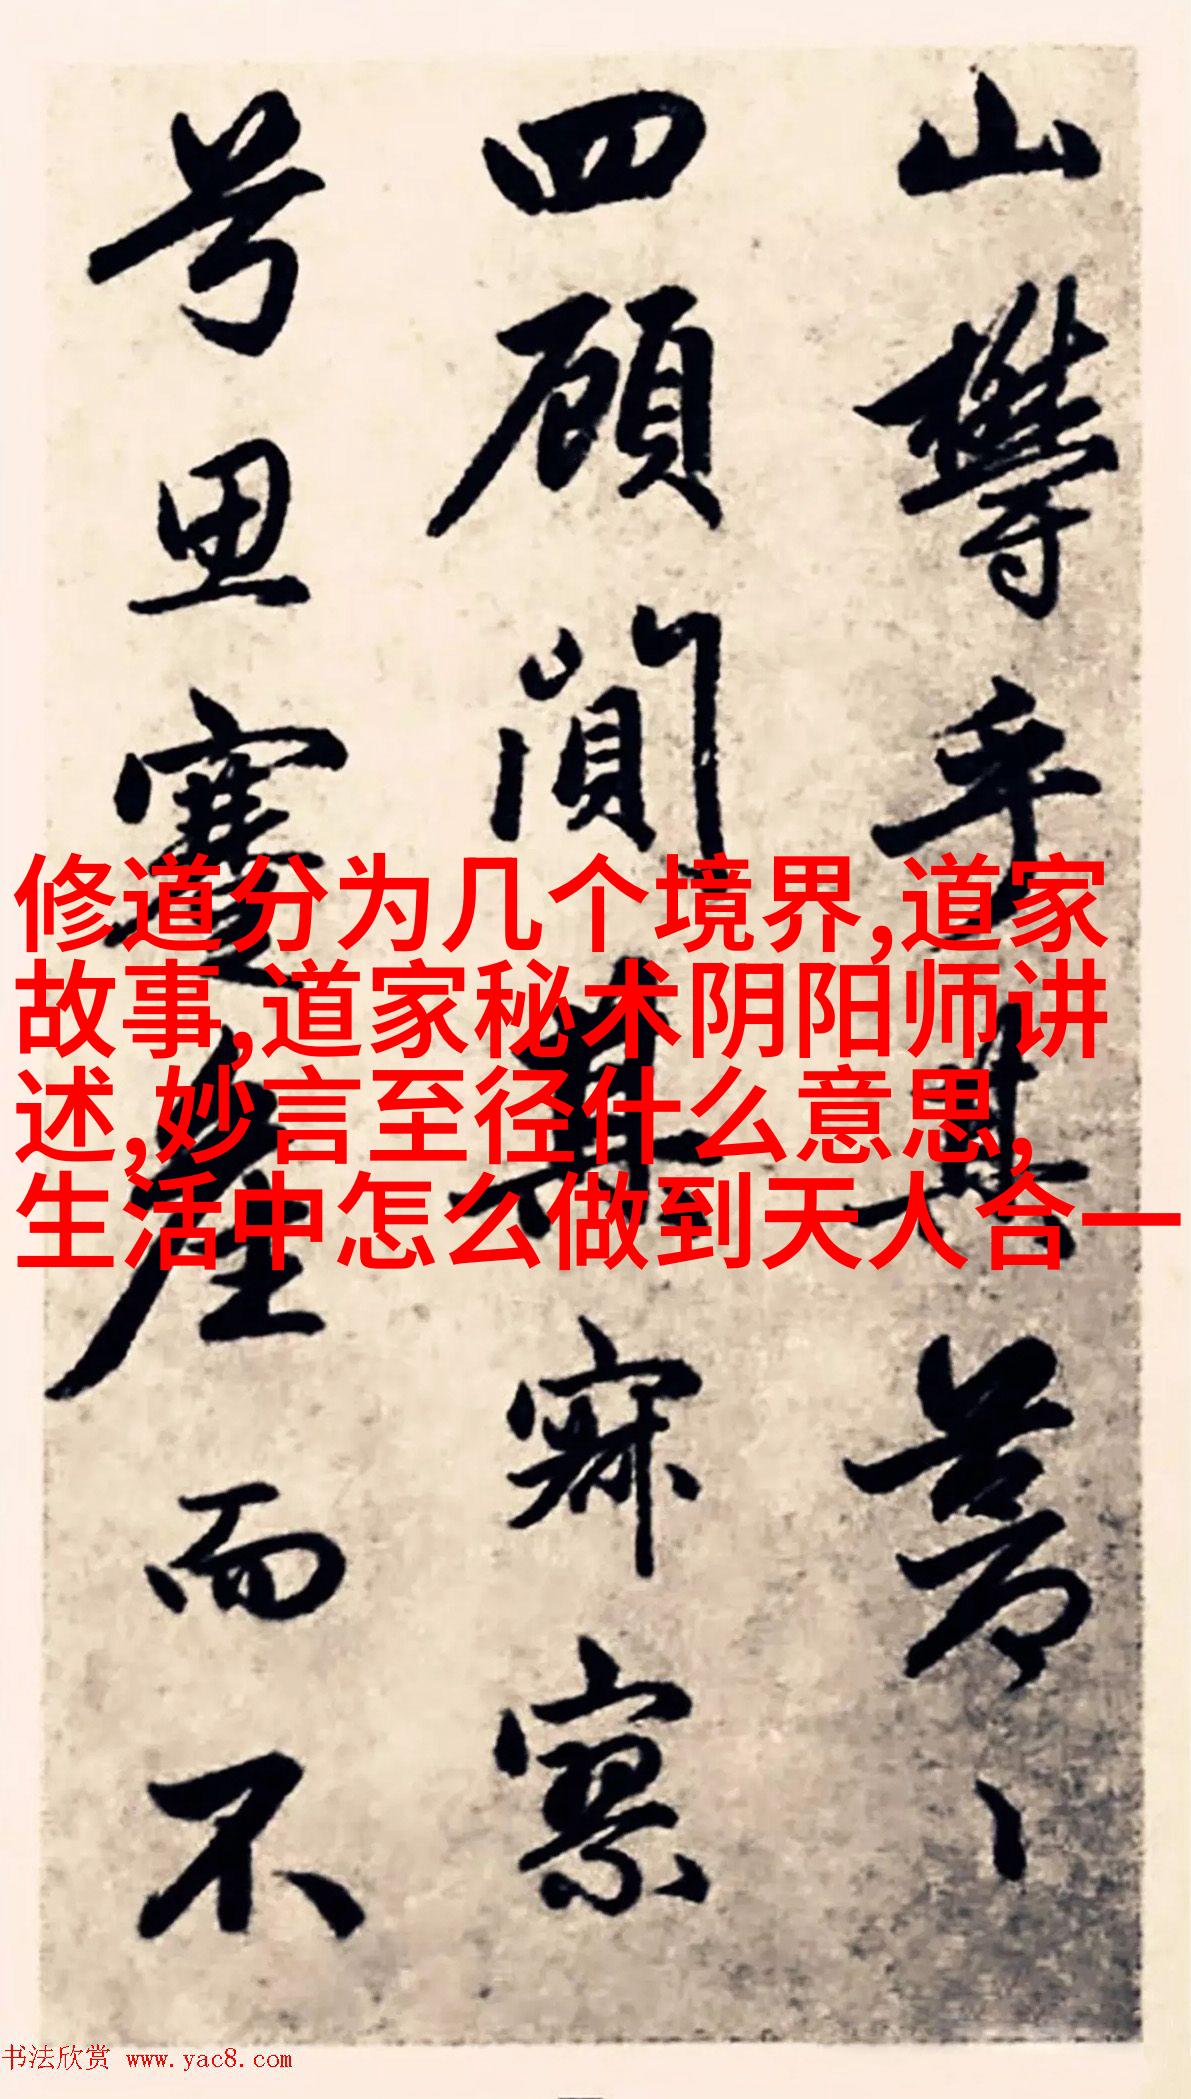 山欝乎其蒼〻
四顧闃其寂寥
兮思蹇產而不
修道分为几个境界,道家
故事,道家秘术阴阳师讲
述,妙言至径什么意思,
生活中怎么做到天人合一
书法欣赏 www.yac8.com